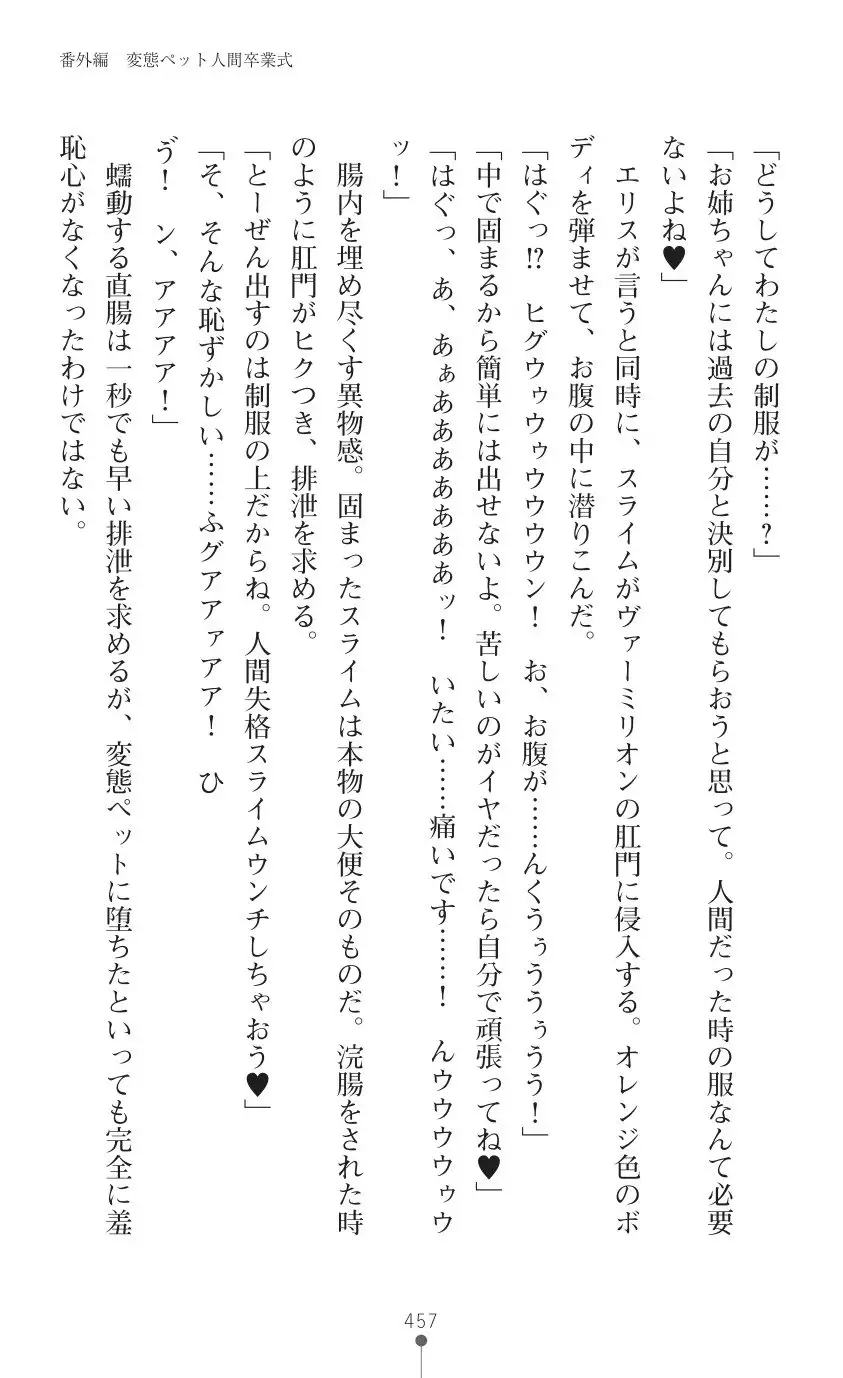 番外編　変態ペット人間卒業式
「どうしてわたしの制服が……？」
「お姉ちゃんには過去の自分と決別してもらおうと思って。人間だった時の服なんて必要
ないよね♥」
　エリスが言うと同時に、スライムがヴァーミリオンの肛門に侵入する。オレンジ色のボ
ディを弾ませて、お腹の中に潜りこんだ。
「はぐっ!?　ヒグウゥウゥウウウウン！　お、お腹が……んくうぅううぅうう！」
「中で固まるから簡単には出せないよ。苦しいのがイヤだったら自分で頑張ってね♥」
「はぐっ、あ、あぁあああああああッ！　いたい……痛いです……！　んウウウウゥウ
ッ！」
　腸内を埋め尽くす異物感。固まったスライムは本物の大便そのものだ。浣腸をされた時
のように肛門がヒクつき、排泄を求める。
「とーぜん出すのは制服の上だからね。人間失格スライムウンチしちゃおう♥」
「そ、そんな恥ずかしい……ふグアアァアア！　ひ
う！　ン、アアアア！」
　蠕動する直腸は一秒でも早い排泄を求めるが、変態ペットに堕ちたといっても完全に羞
恥心がなくなったわけではない。
457